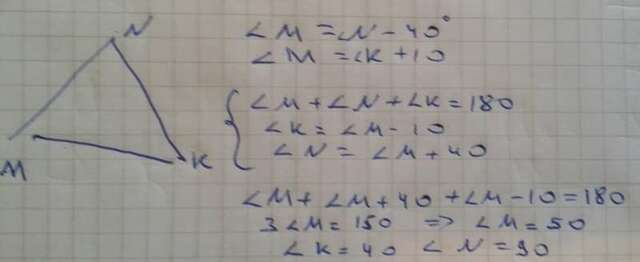 N
M
K
∠M = ∠N - 40°
∠M = ∠K + 10
{ ∠M + ∠N + ∠K = 180
∠K = ∠M - 10
∠N = ∠M + 40
∠M + ∠M + 40 + ∠M - 10 = 180
3∠M = 150 => ∠M = 50
∠K = 40 ∠N = 90